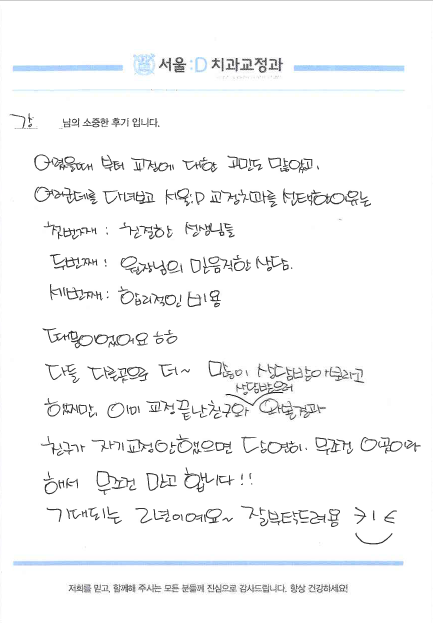 서울:D 치과교정과
강 님의 소중한 후기 입니다.
어렸을때 부터 교정에 대한 고민도 많았고,
여러군데를 다녀보고 서울:D 교정치과를 선택한이유는
첫번째 : 친절한 선생님들
두번째 : 원장님의 믿음직한 상담.
세번째 : 합리적인 비용
때문이었어요 ㅎㅎ
다들 다른곳으로 더~ 많이 상담받아보라고
상담받으러
했지만, 이미 교정끝난친구와 와본결과
친구가 자기교정안했으면 당연히. 무조건 이곳이라
해서 무조건 믿고 합니다!!
기대되는 2년이에요~ 잘부탁드려용
저희를 믿고, 함께해 주시는 모든 분들께 진심으로 감사드립니다. 항상 건강하세요!